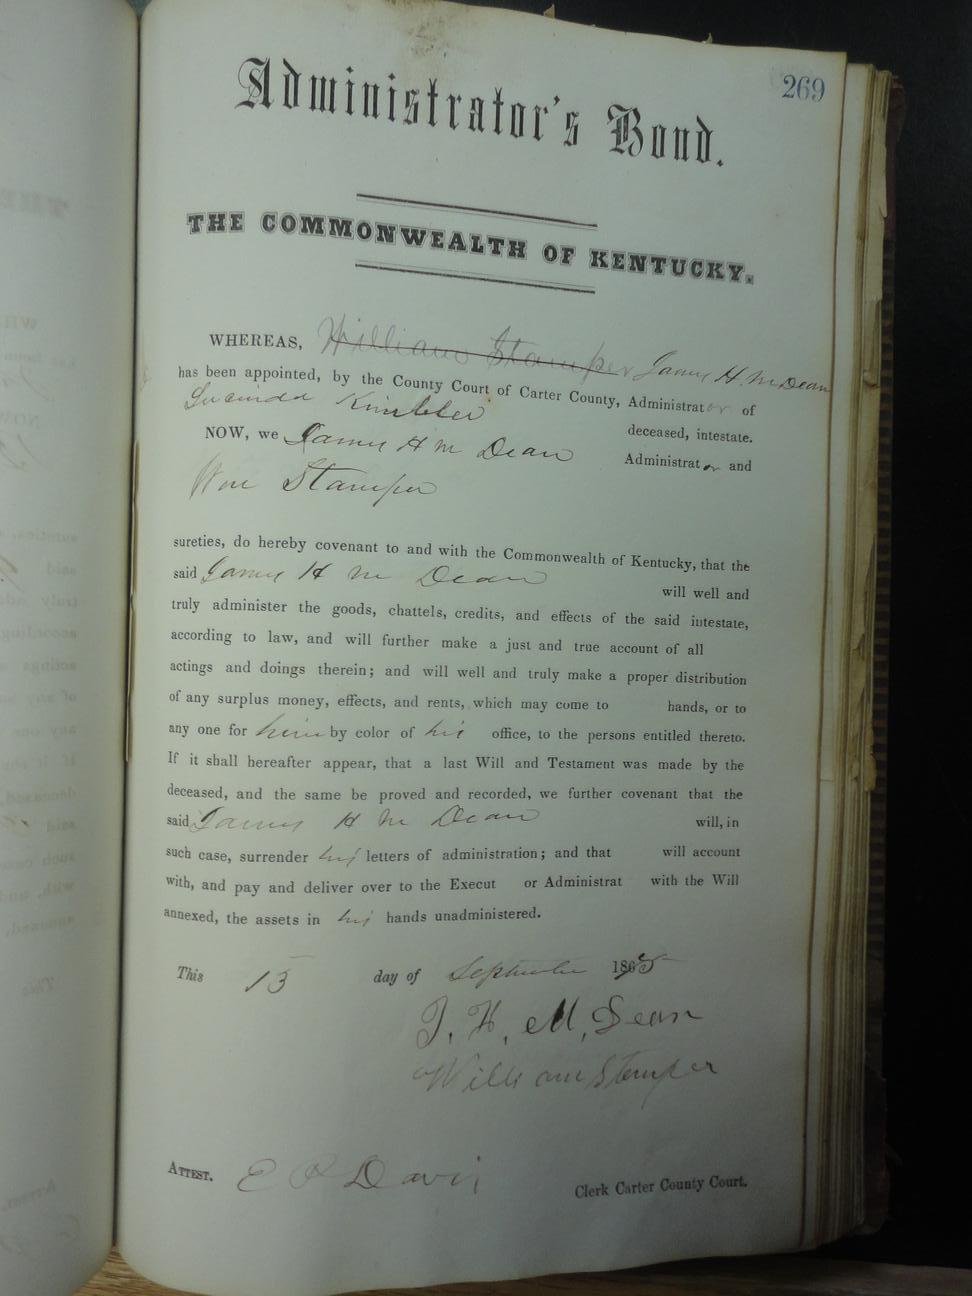 269
Administrator's Bond.
THE COMMONWEALTH OF KENTUCKY.
WHEREAS, William Stamper James H. M Dean
has been appointed, by the County Court of Carter County, Administrator of
Lucinda deceased, intestate.
NOW, we James H M Dean Administrator and
Wm Stamper
sureties, do hereby covenant to and with the Commonwealth of Kentucky, that the
said James H M Dean will well and
truly administer the goods, chattels, credits, and effects of the said intestate,
according to law, and will further make a just and true account of all
actings and doings therein; and will well and truly make a proper distribution
of any surplus money, effects, and rents, which may come to hands, or to
any one for him by color of his office, to the persons entitled thereto.
If it shall hereafter appear, that a last Will and Testament was made by the
deceased, and the same be proved and recorded, we further covenant that the
said James H M Dean will, in
such case, surrender his letters of administration; and that will account
with, and pay and deliver over to the Execut or Administrat with the Will
annexed, the assets in his hands unadministered.
This 15 day of September 186
J. H. M. Dean
William Stamper
ATTEST. Davis Clerk Carter County Court.